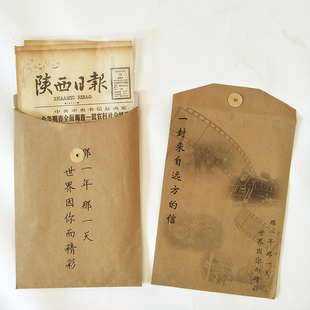 陕西日报
SHAANXI RIBAO
那一年 那一天
世界因你而精彩
一封来自远方的信
那一年 那一天
世界因你而精彩